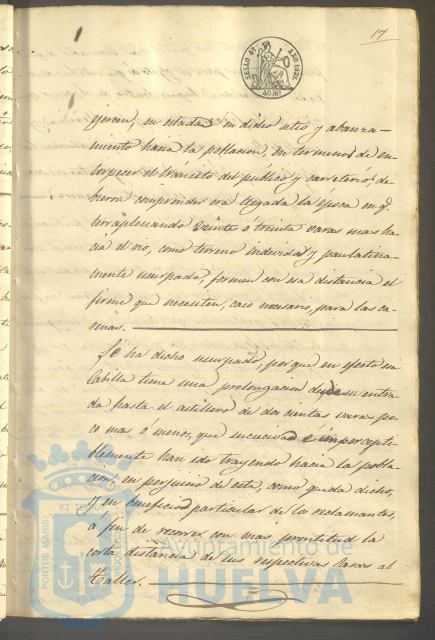 17
SELLO 4º AÑO 1852.
40 Ms
ejercen, su estada en dicho sitio y abanza-
miento hacia la poblacion, en terminos de en-
torpecer el tránsito del publico y carreteria, de-
bieron comprender era llegada la época en q.
terraplenando veinte ó treinta varas mas ha-
cia el rio, como terreno indevida y paulatina-
mente usurpado, formen con esa distancia el
firme que necesiten, caso necesario, para las ca-
renas.
Se ha dicho usurpado, por que en efecto esa
Cabilla tiene una prolongacion desde su entra-
da hasta el astillero de dos cientas varas po-
co mas o menos, que sucesiva é impercepti-
blemente han ido trayendo hacia la pobla-
cion, en perjuicio de esta, como queda dicho,
y en beneficio particular de los reclamantes,
a fin de recorrer con mas prontitud la
corta distancia de sus respectivas casas al
Taller.
PORTUS MARIS ET
Ayuntamiento de
HUELVA